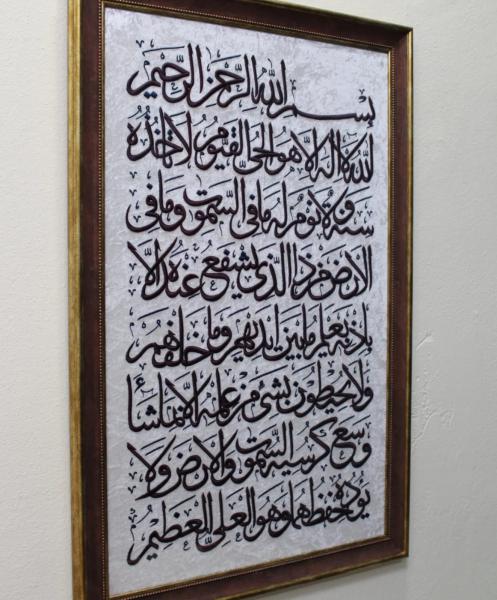 بسم الله الرحمن الرحيم
الله لا اله الا هو الحي القيوم لا تاخذه
سنة ولا نوم له ما في السموت وما في
الارض من ذا الذي يشفع عنده الا
باذنه يعلم ما بين ايديهم وما خلفهم
ولا يحيطون بشئ من علمه الا بما شاء
وسع كرسيه السموت والارض ولا
يؤده حفظهما وهو العلي العظيم